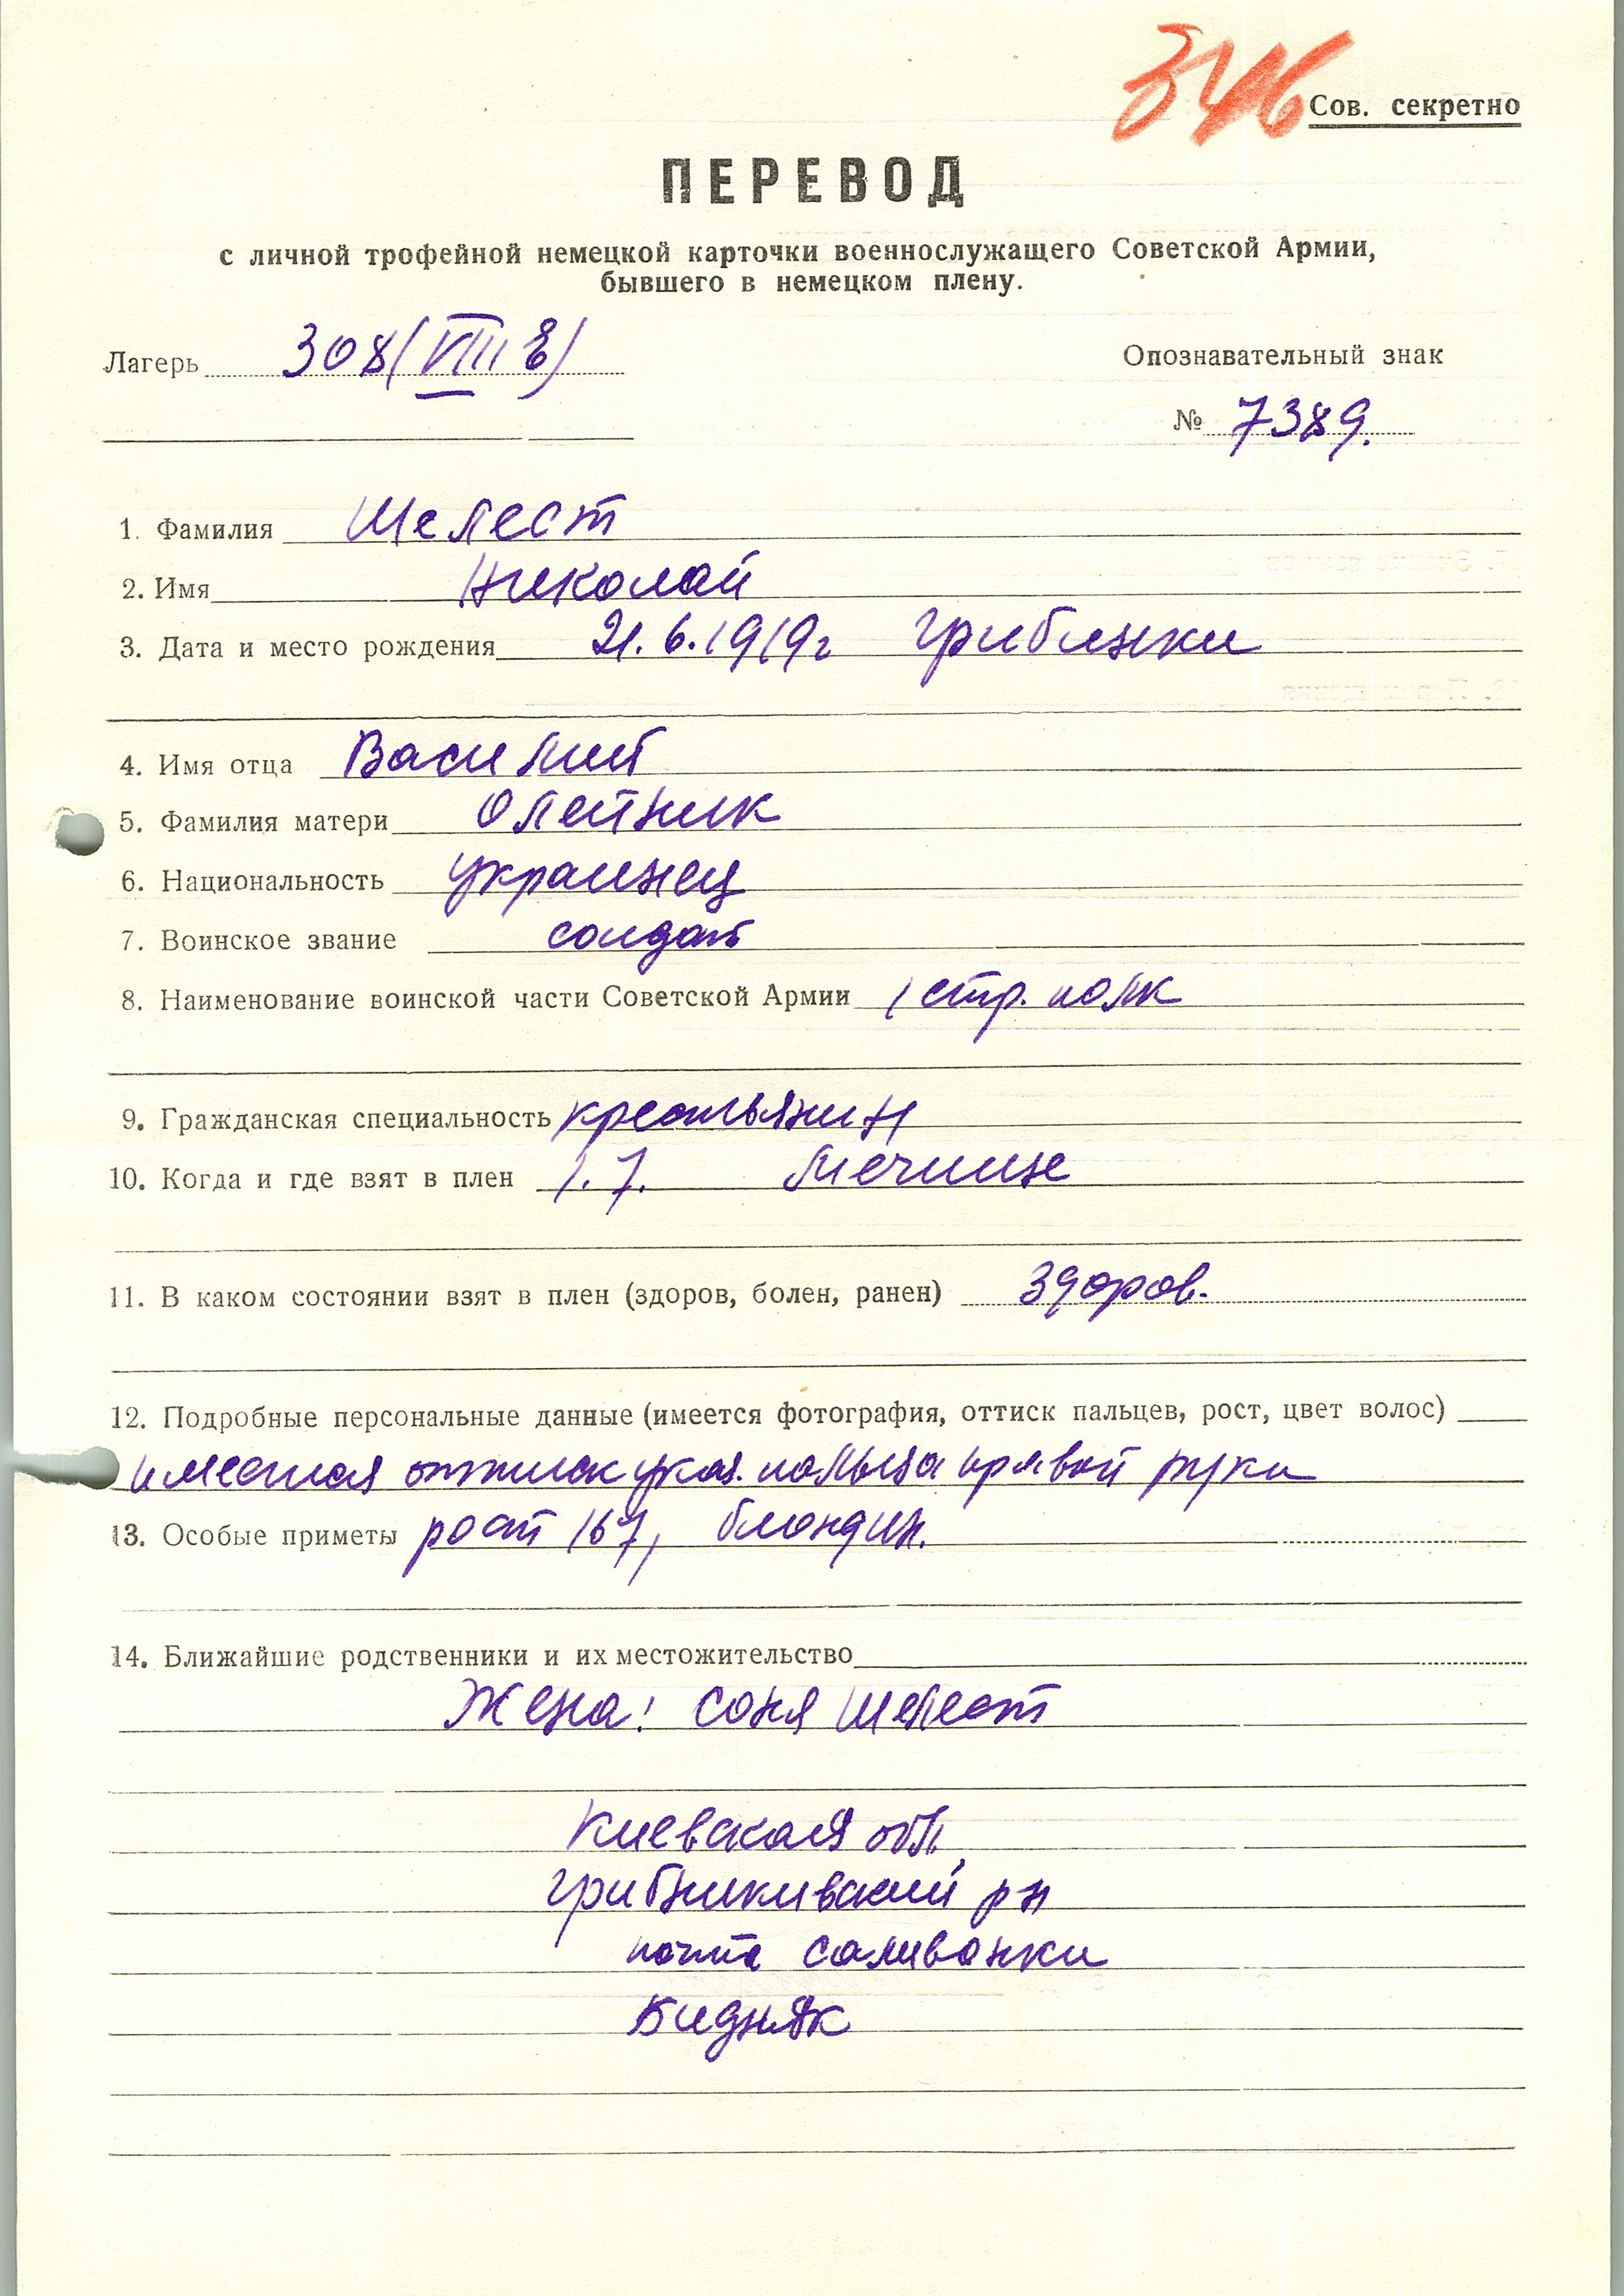 Сов. секретно
ПЕРЕВОД
с личной трофейной немецкой карточки военнослужащего Советской Армии,
бывшего в немецком плену.
Лагерь 308 (VIII E)
Опознавательный знак
№ 7389.
1. Фамилия Шелест
2. Имя Николай
3. Дата и место рождения 21.6.1919г Грибинки
4. Имя отца Василий
5. Фамилия матери Олейник
6. Национальность украинец
7. Воинское звание солдат
8. Наименование воинской части Советской Армии 1 стр. полк
9. Гражданская специальность крестьянин
10. Когда и где взят в плен 1.7.
11. В каком состоянии взят в плен (здоров, болен, ранен) здоров.
12. Подробные персональные данные (имеется фотография, оттиск пальцев, рост, цвет волос)
имеется оттиск указ. пальца правой руки
13. Особые приметы рост 167, блондин.
14. Ближайшие родственники и их местожительство
Жена: Соня Шелест
Киевская обл,
Грибникивский рн
почта Саливонки
Бидняк